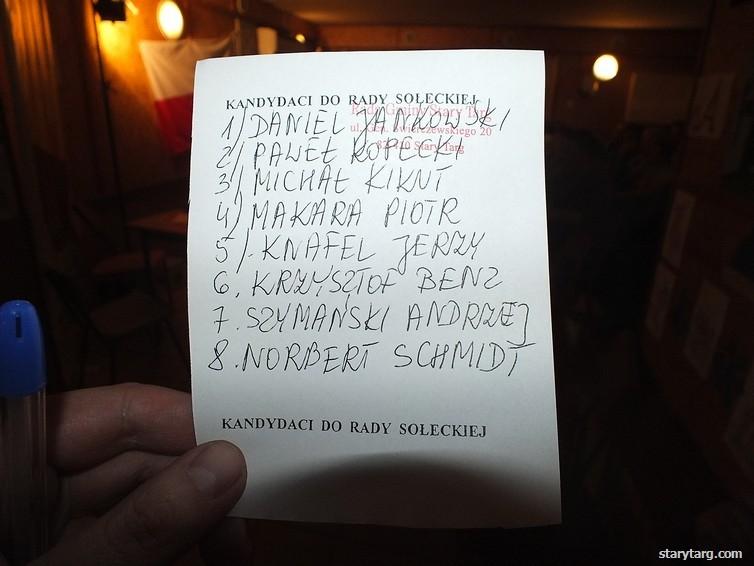 KANDYDACI DO RADY SOŁECKIEJ
Rada Gminy Stary Targ
ul. Gen. Świerczewskiego 20
82-410 Stary Targ
1) DANIEL JANKOWSKI
2) PAWEŁ KOPECKI
3) MICHAŁ KIKNT
4) MAKARA PIOTR
5) KNAFEL JERZY
6. KRZYSZTOF BENZ
7. SZYMAŃSKI ANDRZEJ
8. NORBERT SCHMIDT
KANDYDACI DO RADY SOŁECKIEJ
starytarg.com